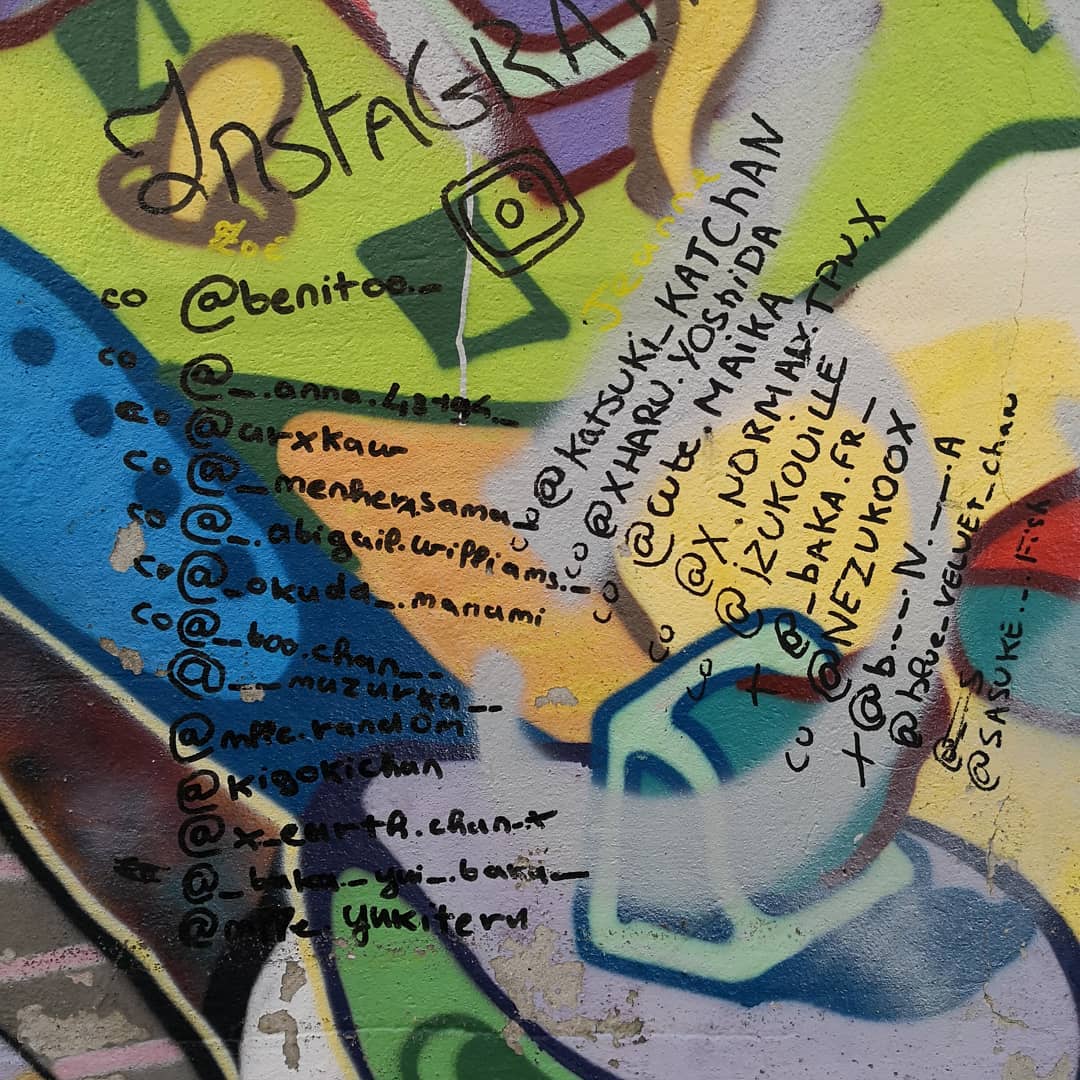 InstaGRAM
Zoé
Jeanne
co @benitoo._
co @_.anna.
co @arxkaw
co @_menhera
co @_.abigail.williams._
co @_okuda_.manami
co @__boo.chan__
@___muzurka__
@mlle.random
@kigokichan
@x_earth.chan_x
@_baka._yui_.baka_
@mlle.yukiteru
co @KATSUKI_KATCHAN
co @XHARU.YOSHIDA
co @cute.MAIKA
co @X.NORMALX.TPN.X
co @iZUKOUiLLE
+ @_baka.FR_
co @NEZUKOOX
+ @b---.N---.A
@blue_VELVET_chan
@SASUKE._.Fish